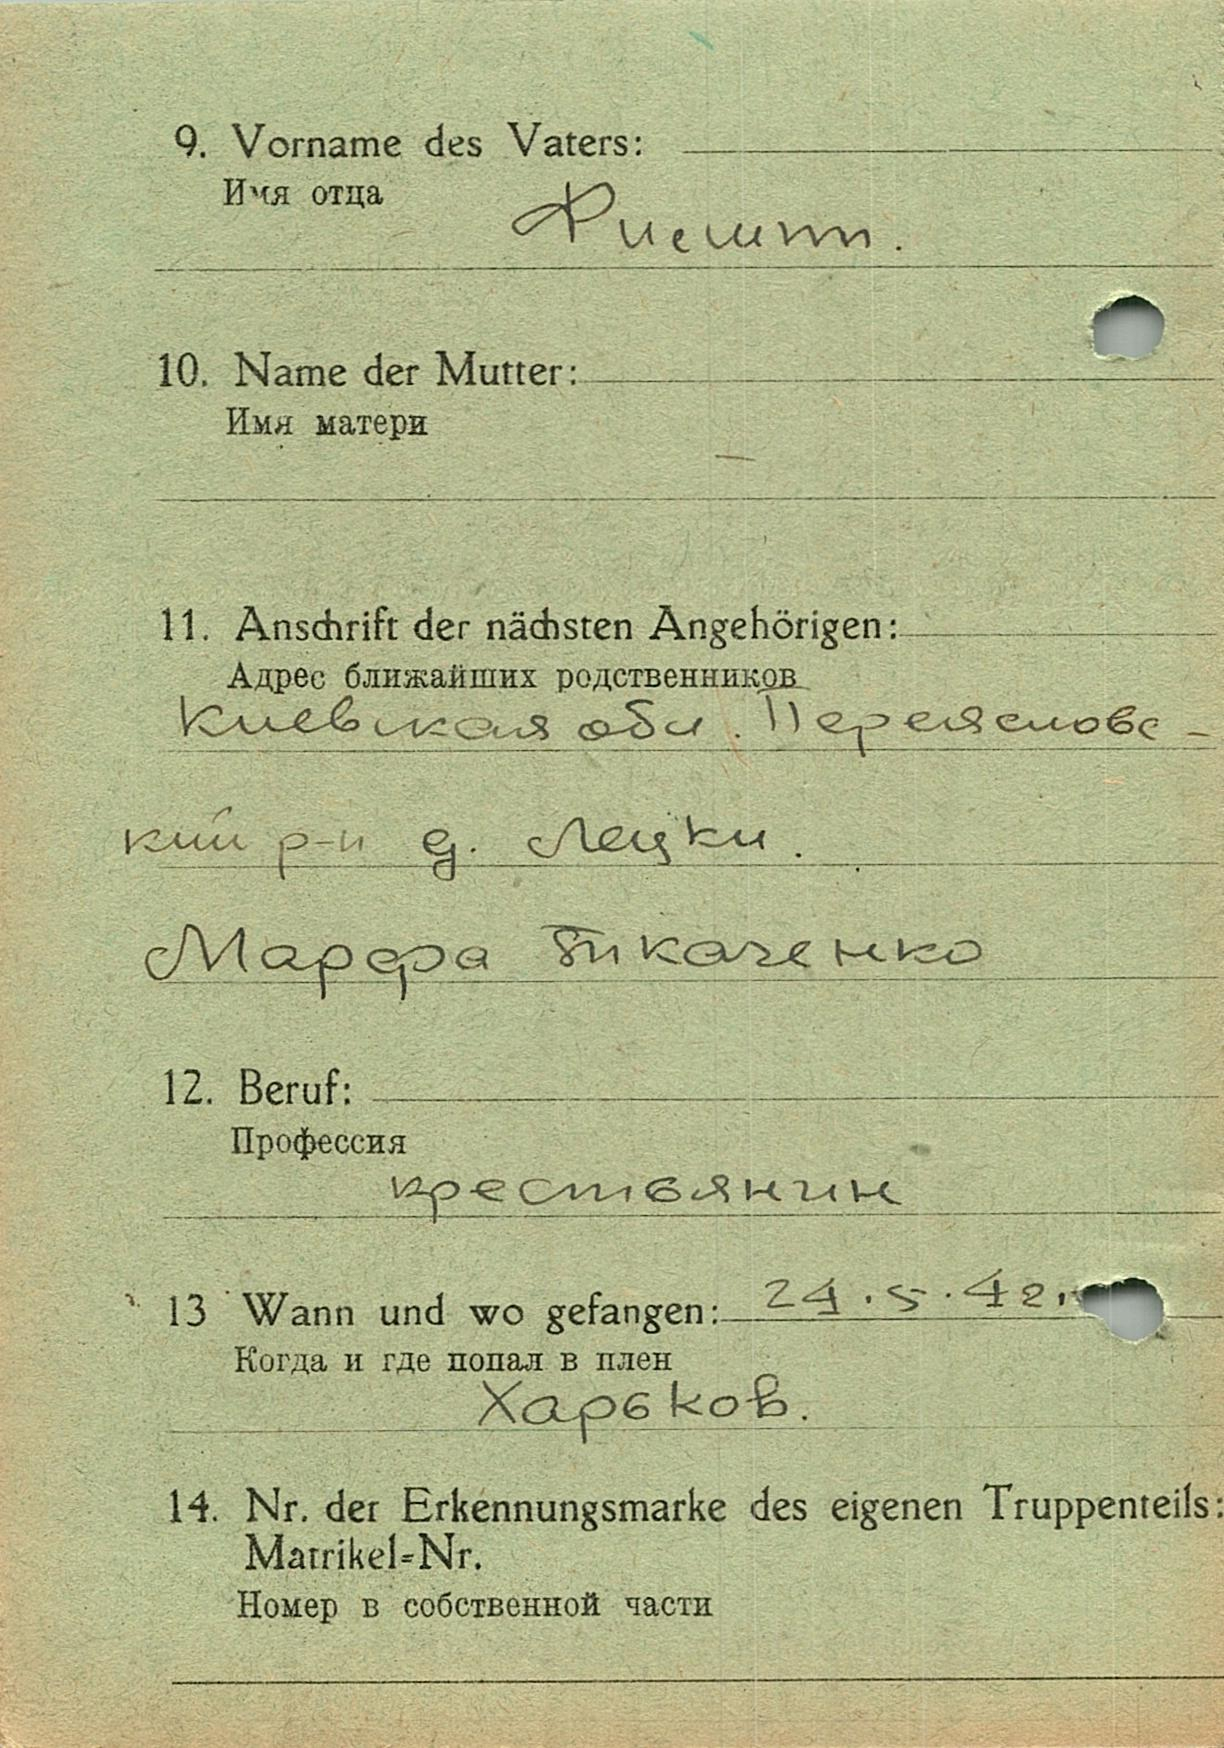 9. Vorname des Vaters:
Имя отца
10. Name der Mutter:
Имя матери
—
11. Anschrift der nächsten Angehörigen:
Адрес ближайших родственников
Киевская обл. Переяславс-
кий р-н д. Лецки.
Марфа Ткаченко
12. Beruf:
Профессия
крестьянин
13 Wann und wo gefangen: 24.5.42.
Когда и где попал в плен
Харьков.
14. Nr. der Erkennungsmarke des eigenen Truppenteils:
Matrikel=Nr.
Номер в собственной части